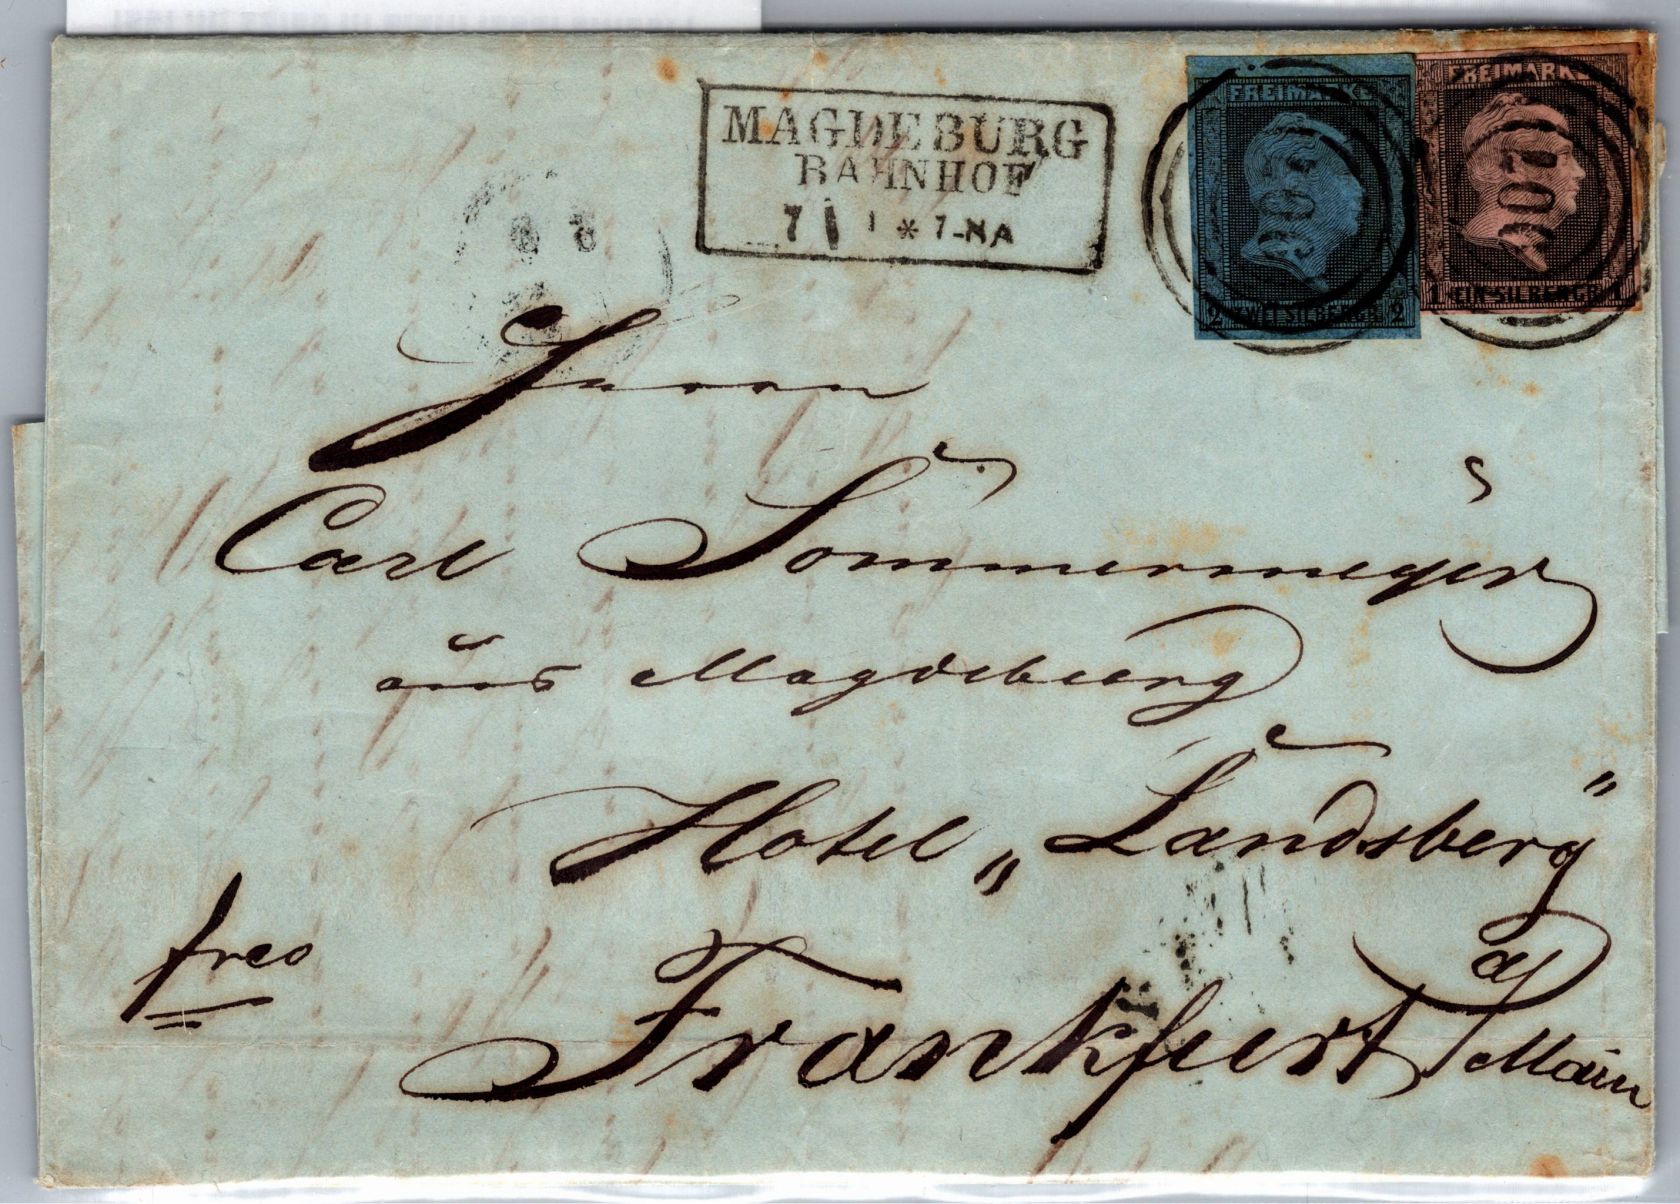 MAGDEBURG
BAHNHOF
7 1 * 7-NA
FREIMARKE
2 ZWEI SILBERGR. 2
FREIMARKE
1 EIN SILBERGR. 1
Herrn
Carl Sommermeyer
aus Magdeburg
Hotel „Landsberg“
frco
Frankfurt a/Main